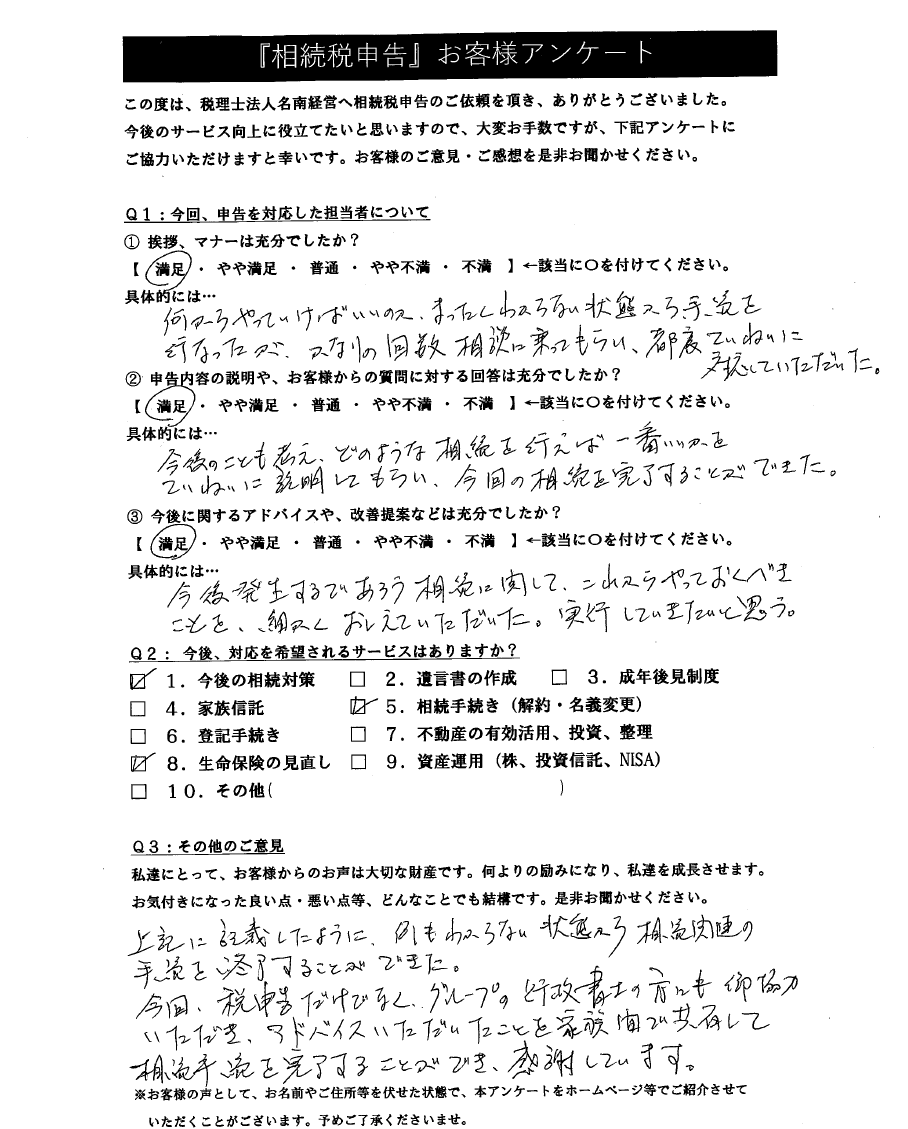 『相続税申告』お客様アンケート
この度は、税理士法人名南経営へ相続税申告のご依頼を頂き、ありがとうございました。
今後のサービス向上に役立てたいと思いますので、大変お手数ですが、下記アンケートに
ご協力いただけますと幸いです。お客様のご意見・ご感想を是非お聞かせください。
Q1：今回、申告を対応した担当者について
① 挨拶、マナーは充分でしたか？
【 満足 ・ やや満足 ・ 普通 ・ やや不満 ・ 不満 】←該当に○を付けてください。
具体的には…
何からやっていけばいいのか、まったくわからない状態から手続を
行なったが、かなりの回数相談に乗ってもらい、都度ていねいに
対応していただいた。
② 申告内容の説明や、お客様からの質問に対する回答は充分でしたか？
【 満足 ・ やや満足 ・ 普通 ・ やや不満 ・ 不満 】←該当に○を付けてください。
具体的には…
今後のことも考え、どのような相続を行えば一番いいかを
ていねいに説明してもらい、今回の相続を完了することができた。
③ 今後に関するアドバイスや、改善提案などは充分でしたか？
【 満足 ・ やや満足 ・ 普通 ・ やや不満 ・ 不満 】←該当に○を付けてください。
具体的には…
今後発生するであろう相続に関して、これからやっておくべき
ことを、細かくおしえていただいた。実行していきたいと思う。
Q2： 今後、対応を希望されるサービスはありますか？
☑ 1．今後の相続対策 □ 2．遺言書の作成 □ 3．成年後見制度
□ 4．家族信託 ☑ 5．相続手続き（解約・名義変更）
□ 6．登記手続き □ 7．不動産の有効活用、投資、整理
☑ 8．生命保険の見直し □ 9．資産運用（株、投資信託、NISA）
□ 10．その他( )
Q3：その他のご意見
私達にとって、お客様からのお声は大切な財産です。何よりの励みになり、私達を成長させます。
お気付きになった良い点・悪い点等、どんなことでも結構です。是非お聞かせください。
上記に記載したように、何もわからない状態から相続関連の
手続を終了することができた。
今回、税申告だけでなく、グループの行政書士の方にも御協力
いただき、アドバイスいただいたことを家族間で共有して
相続手続を完了することができ、感謝しています。
※お客様の声として、お名前やご住所等を伏せた状態で、本アンケートをホームページ等でご紹介させて
いただくことがございます。予めご了承くださいませ。